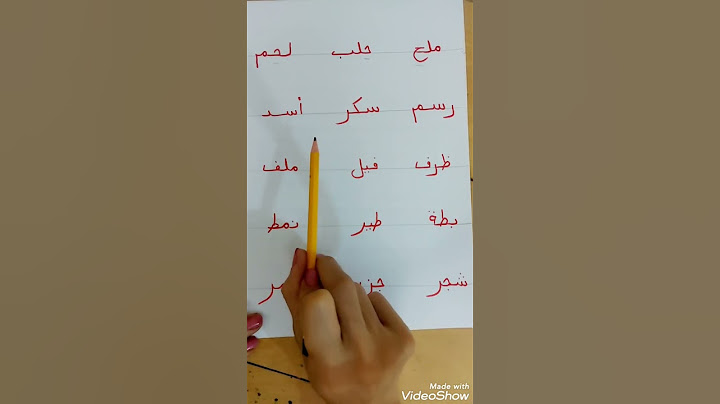 ملح حلب لحم
رسم سكر أسد
ظرف فيل ملف
بطة طير نمط
شجر
Made with
VideoShow